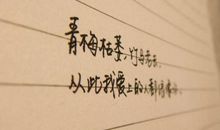 青梅枯萎,竹马老去。
从此我爱上的人都像你。